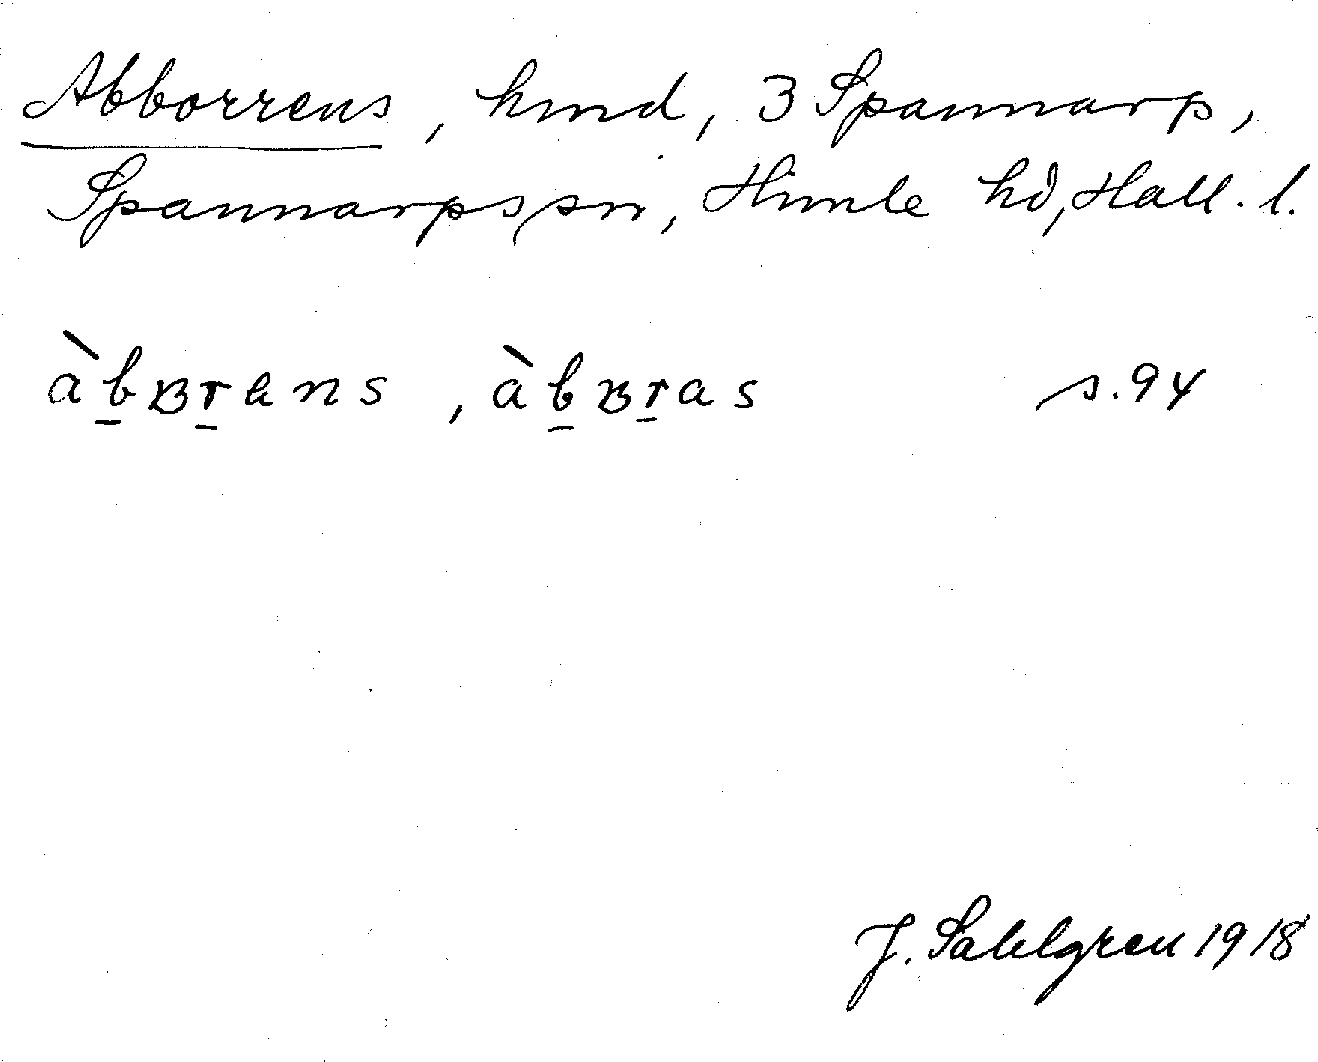 Abborrens, hmd, 3 Spannarp,
Spannarps sn, Himle hd, Hall. l.
àb̲ʙr̲ens, àb̲ʙr̲as s. 94
J. Sahlgren 1918